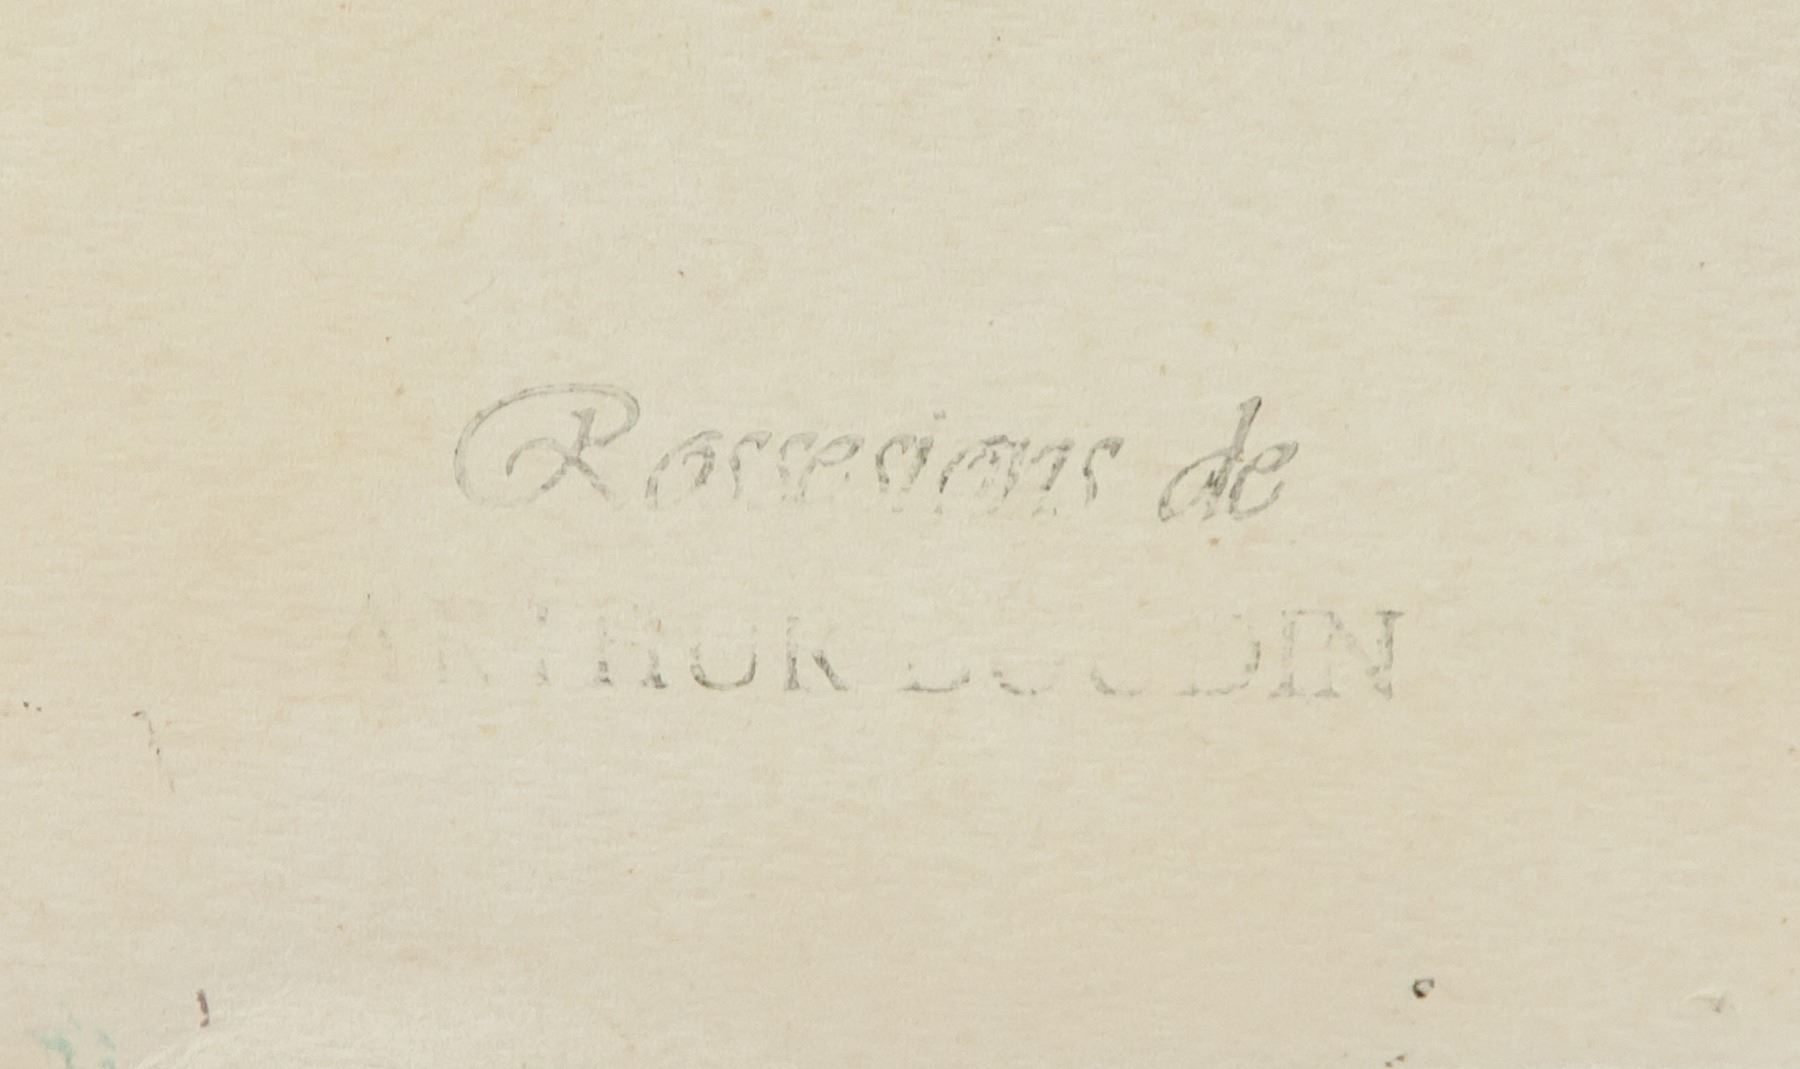 Rossesions de
ARTHUR BOUDIN